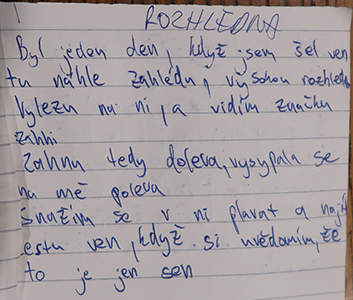 ROZHLEDNA
Byl jeden den, když jsem šel ven
tu náhle zahlédnu, vysokou rozhledn
Vylezu na ni, a vidím značku
zahni
Zahnu tedy doleva, vysypala se
na mě poleva
Snažím se v ní plavat a najít
estu ven, když si uvědomím, že
to je jen sen